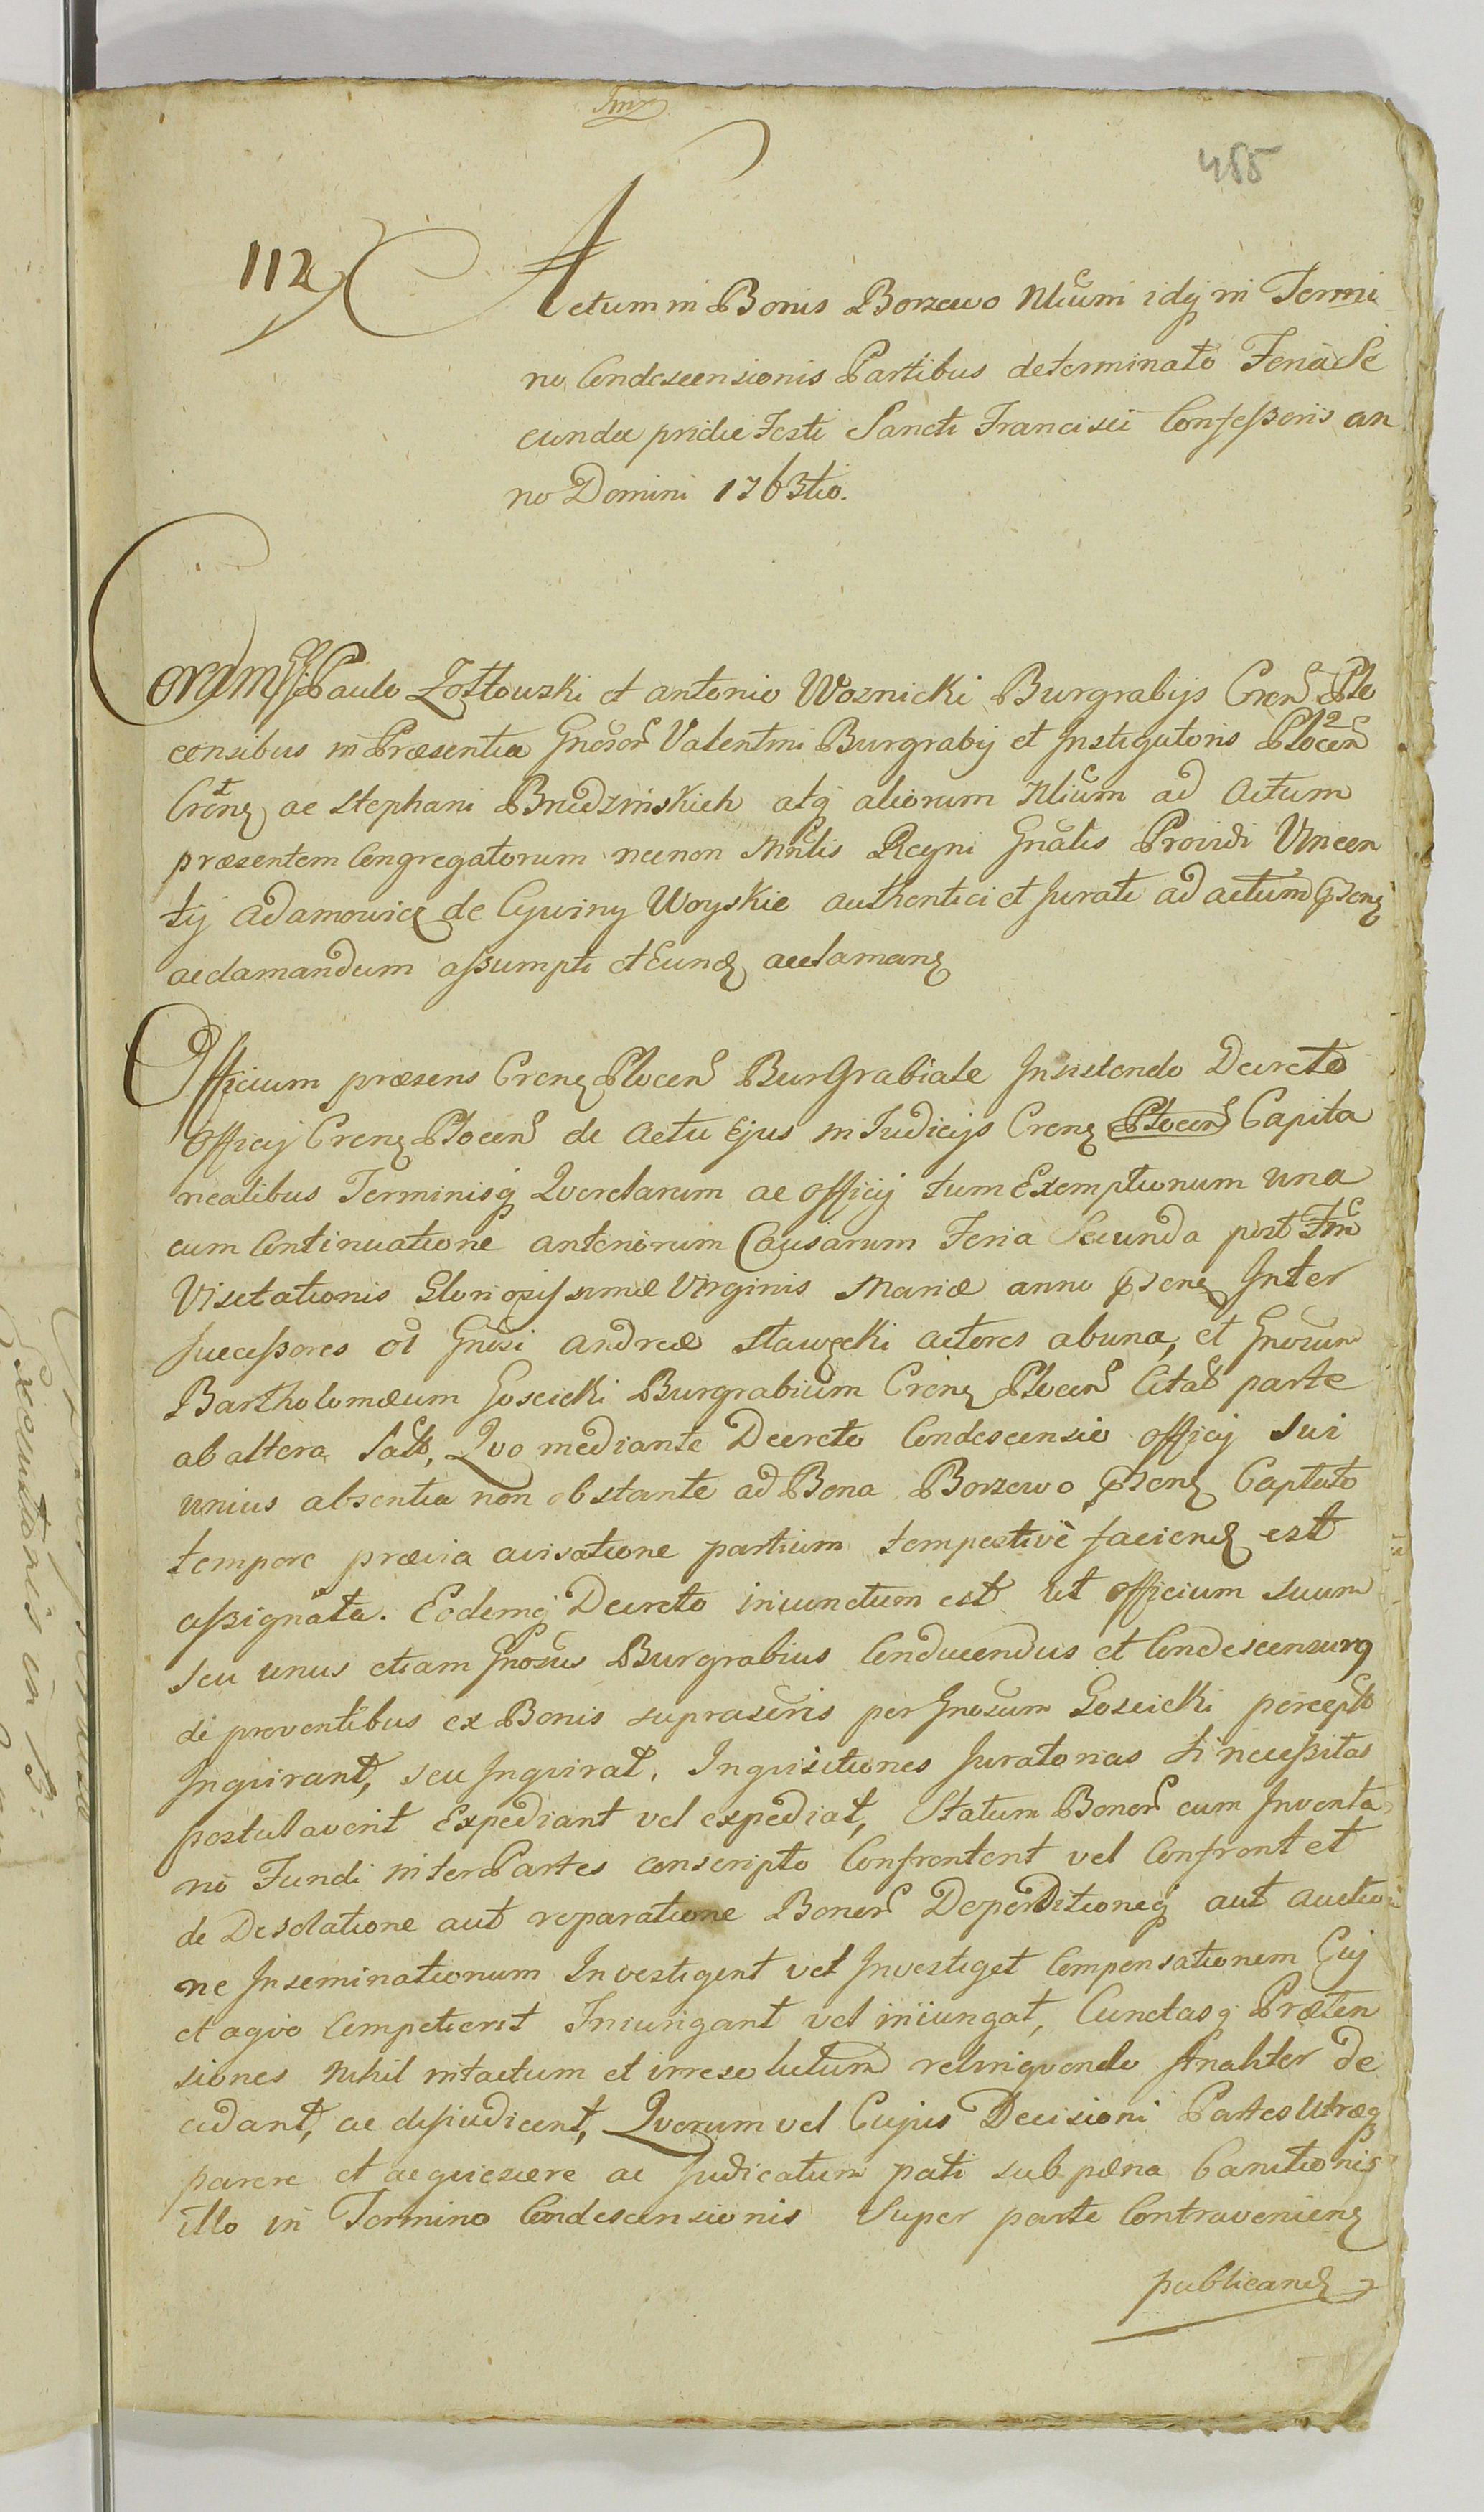 Tmz
485
112
Actum in Bonis Borzewo Nlium idq in Termi
no Condescensionis Partibus determinato Feria Se
cunda pridie Festi Sancti Francisci Confessoris an
no Domini 1763tio.
Coram Paulo Zołtowski et Antonio Woznicki Burgrabijs Cren Plo
censibus in Præsentia Gnosor Valentini Burgrabij et Instigatoris Plocen
Cren ac Stephani Brudzinskich atq aliorum Nlium ad Actum
præsentem Congregatorum necnon Mnlis Regni Gnalis Providi Vincen
tij Adamowicz de Cywiny Woyskie authentici et Jurati ad actum præsen
acclamandum assumpti et Eund acclaman
Officium præsens Cren Plocen BurGrabiale Insistendo Decreto
Officij Cren Plocen de Actu Ejus in Judicijs Cren Plocen Capita
nealibus Terminisq Querelarum ac officij tum Exemptionum una
cum Continuatione anteriorum Causarum Feria Secunda post Ftm
Visitationis Gloriosissimæ Virginis Mariæ anno præsen Inter
Successores ol Gnosi Andreæ Sławęcki actores ab una, et Gnosum
Bartholomæum Goscicki Burgrabium Cren Plocen Citat parte
ab altera lato, Quo mediante Decreto Condescensio officij Sui
unius absentia non obstante ad Bona Borzewo præsen Captato
tempore prævia avisatione partium tempestivè faciend est
assignata. Eodemq Decreto iniunctum est ut officium suum
seu unus etiam Gnosus Burgrabius Conducendus et Condescensurq
di proventibus ex Bonis suprascris per Gnosum Goscicki percept
Inquirant, seu Inquirat, Inquisitiones Juratorias si necessitas
postulaverit Expediant vel expediat, Statum Bonor cum Inventa
rio Fundi inter Partes conscripto Confrontent vel Confrontet
de Desolatione aut reparatione Bonor Deperditioneq aut auctio
ne Inseminationum Investigent vel Investiget Compensationem Cuj
et a quo Competierit Iniungant vel iniungat, Cunctasq Præten
siones Nihil intactum et irresolutum relinquendo finaliter de
cidant, ac disjudicent, Quorum vel Cujus Decisioni Partes Utræq
parere et acquiescere ac Judicatum pati sub pæna Banitionis
illo in Termino Condescensionis Super parte Contravenien
publicand